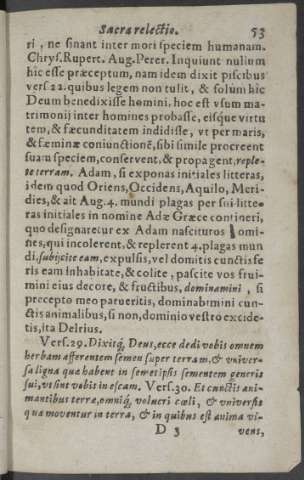 Sacra relectio. 53
ri, ne sinant inter mori speciem humanam.
Chrys. Rupert. Aug. Perer. Inquiunt nullum
hic esse præceptum, nam idem dixit piscibus
vers 22. quibus legem non tulit, & solùm hic
Deum benedixisse homini, hoc est vsum ma-
trimonij inter homines probasse, eisque virtu
tem, & fæcunditatem indidisse, vt per maris,
& fæminæ coniunctionē, sibi simile procreent
suam speciem, conservent, & propagent, reple-
te terram. Adam, si exponas initiales litteras,
idem quod Oriens, Occidens, Aquilo, Meri-
dies, & ait Aug. 4. mundi plagas per sui litte-
ras initiales in nomine Adæ Græce contineri,
quo designaretur ex Adam nascituros omi-
nes, qui incolerent, & replerent 4. plagas mun
di, subijcite eam, expulsis, vel domitis cunctis fe
ris eam inhabitate, & colite, pascite vos frui-
mini eius decore, & fructibus, dominamini, si
precepto meo parueritis, dominabimini cun-
ctis animalibus, si non, dominio vestro excide-
tis, ita Delrius.
Vers. 29. Dixitq́, Deus, ecce dedi vobis omnem
herbam afferentem semen super terram, & vniver-
sa ligna quæ habent in semetipsis sementem generis
sui, vt sint vobis in escam. Vers. 30. Et cunctis ani-
mantibus terræ, omniq́, volucri cæli, & vniversis
quæ moventur in terra, & in quibus est anima vi-
D 3 vens,